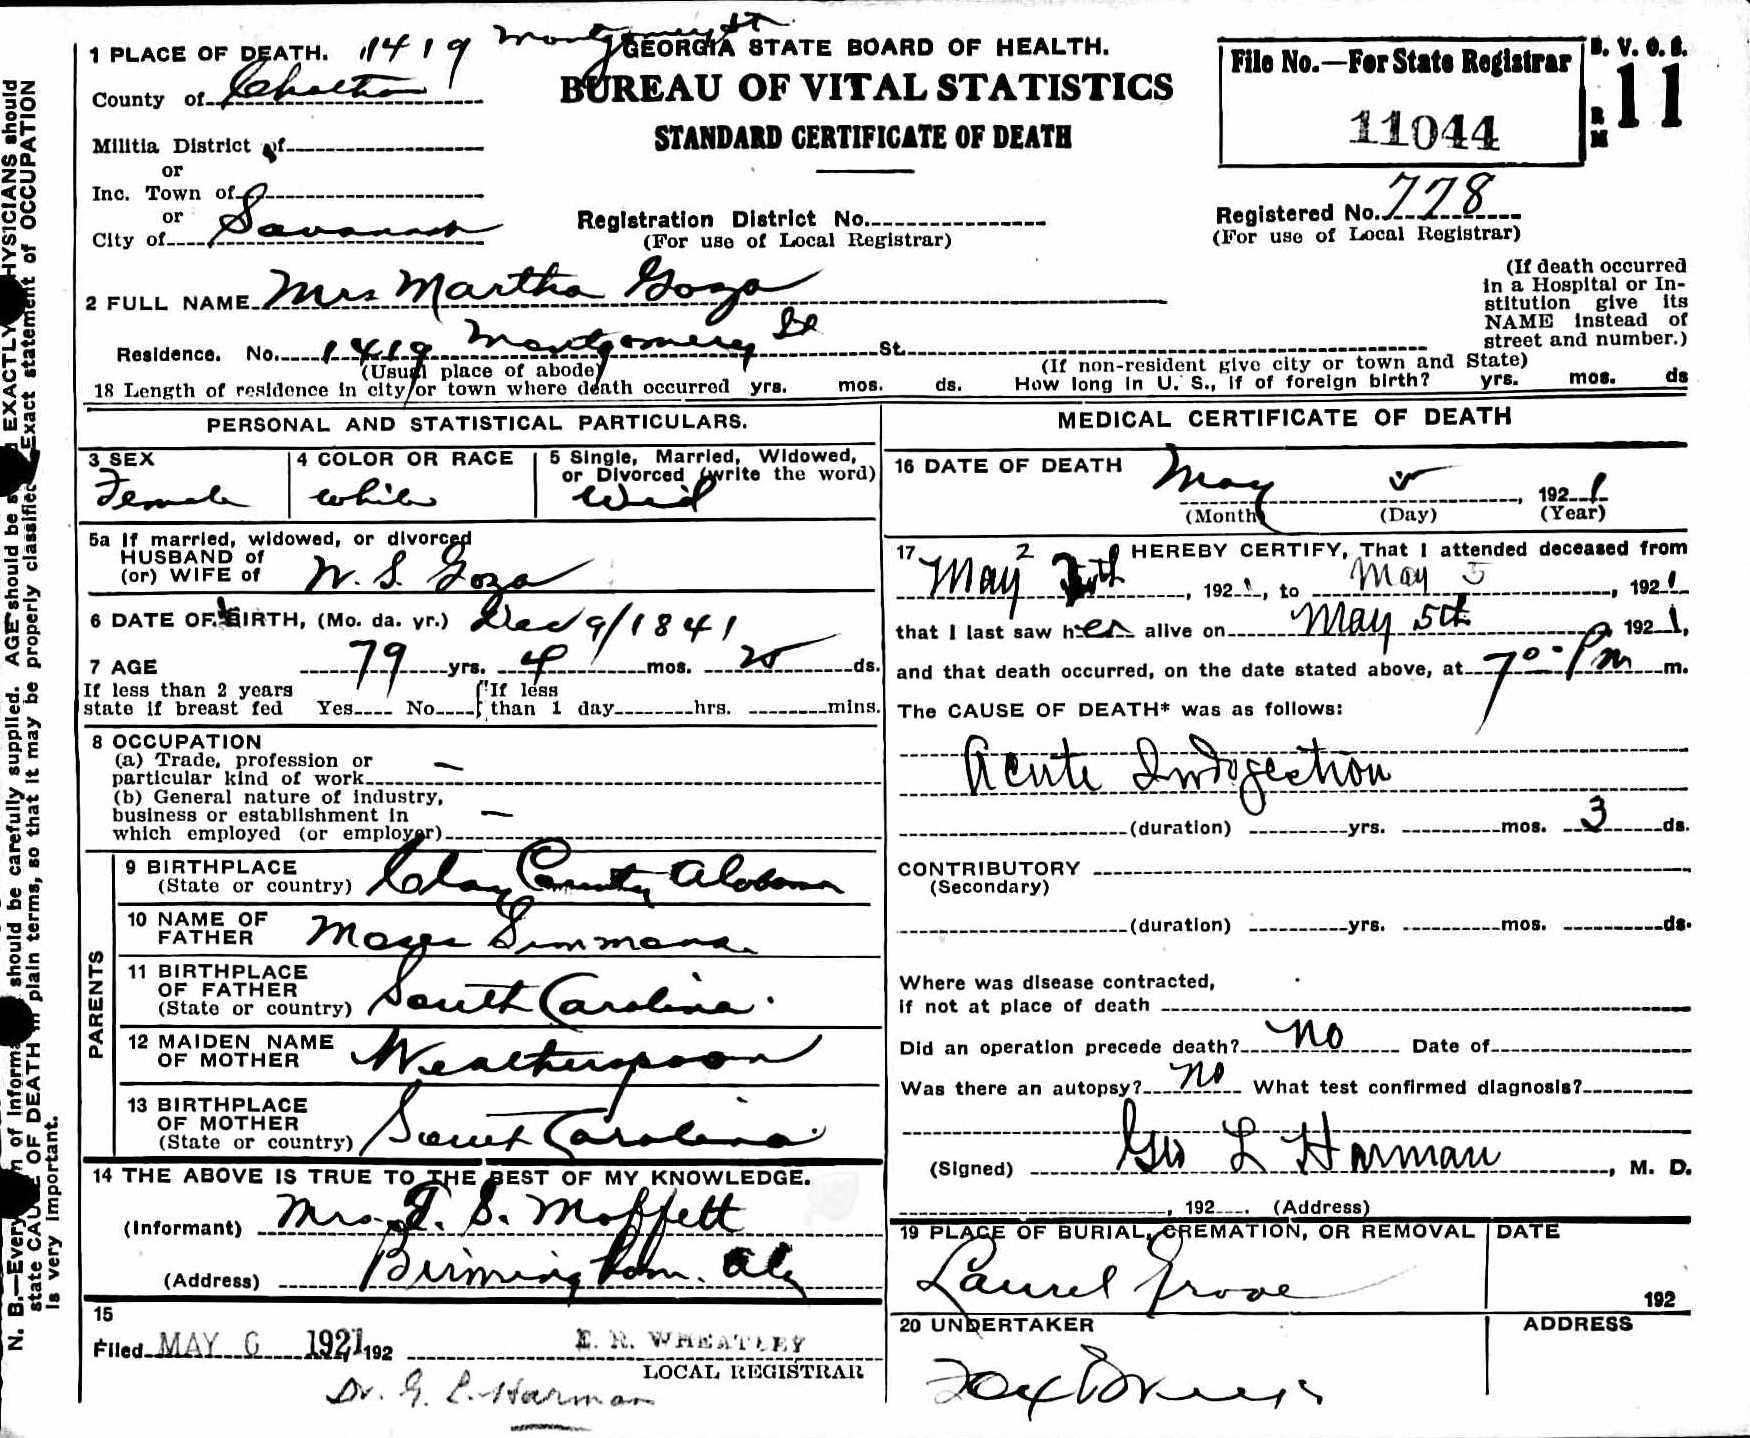 1 PLACE OF DEATH. 1419 Montgomery St
GEORGIA STATE BOARD OF HEALTH.
BUREAU OF VITAL STATISTICS
STANDARD CERTIFICATE OF DEATH
File No.—For State Registrar
11044
B. V. O. S.
RM 11
County of Chatham
Militia District of
or
Inc. Town of
or
City of Savannah
Registration District No.
(For use of Local Registrar)
Registered No. 778
(For use of Local Registrar)
2 FULL NAME Mrs Martha Goza
(If death occurred
in a Hospital or In-
stitution give its
NAME instead of
street and number.)
Residence. No. 1419 Montgomery St St.
(Usual place of abode) (If non-resident give city or town and State)
18 Length of residence in city or town where death occurred yrs. mos. ds. How long in U. S., if of foreign birth? yrs. mos. ds
PERSONAL AND STATISTICAL PARTICULARS.
3 SEX
Female
4 COLOR OR RACE
white
5 Single, Married, Widowed,
or Divorced (write the word)
Wid
5a If married, widowed, or divorced
HUSBAND of
(or) WIFE of W. S. Goza
6 DATE OF BIRTH, (Mo. da. yr.) Dec 9/1841
7 AGE 79 yrs. 4 mos. 25 ds.
If less than 2 years
state if breast fed Yes No
If less
than 1 day hrs. mins.
8 OCCUPATION
(a) Trade, profession or
particular kind of work —
(b) General nature of industry,
business or establishment in
which employed (or employer) —
PARENTS
9 BIRTHPLACE
(State or country) Clay County Alabama
10 NAME OF
FATHER Moses Simmons
11 BIRTHPLACE
OF FATHER
(State or country) South Carolina.
12 MAIDEN NAME
OF MOTHER Weatherspoon
13 BIRTHPLACE
OF MOTHER
(State or country) South Carolina.
14 THE ABOVE IS TRUE TO THE BEST OF MY KNOWLEDGE.
(Informant) Mrs. T. S. Moffett
(Address) Birmingham. Ala
15
Filed MAY 6 1921, 192
E. R. WHEATLEY
LOCAL REGISTRAR
Dr. G. L. Harman
MEDICAL CERTIFICATE OF DEATH
16 DATE OF DEATH May 5, 1921
(Month) (Day) (Year)
17 HEREBY CERTIFY, That I attended deceased from
May 2, 1921, to May 5, 1921
that I last saw her alive on May 5th, 1921,
and that death occurred, on the date stated above, at 7 0 - Pm m.
The CAUSE OF DEATH* was as follows:
Acute Indigestion
(duration) yrs. mos. 3 ds.
CONTRIBUTORY
(Secondary)
(duration) yrs. mos. ds.
Where was disease contracted,
if not at place of death
Did an operation precede death? No Date of
Was there an autopsy? No What test confirmed diagnosis?
(Signed) Geo L Harman, M. D.
, 192 . (Address)
19 PLACE OF BURIAL, CREMATION, OR REMOVAL
Laurel Grove
DATE
192
20 UNDERTAKER
ADDRESS
N. B.—Every of Informa should be carefully supplied. AGE should be EXACTLY PHYSICIANS should
state CAUSE OF DEATH in plain terms, so that it may be properly classified. Exact statement of OCCUPATION
is very important.